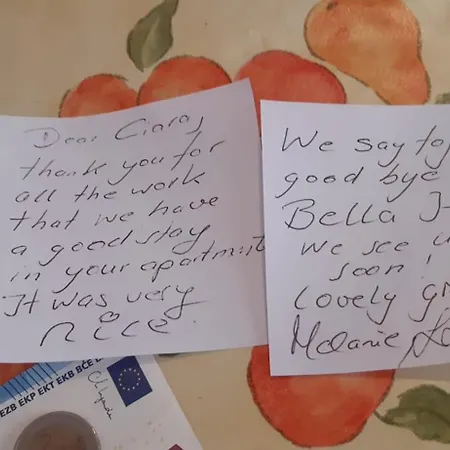 Dear Ciara,
thank you for
all the work
that we have
a good stay
in your apartment
It was very
nice.
We say to
good bye
Bella
we see
soon!
lovely
Melanie
EZB EKP EKT EKB BĊE